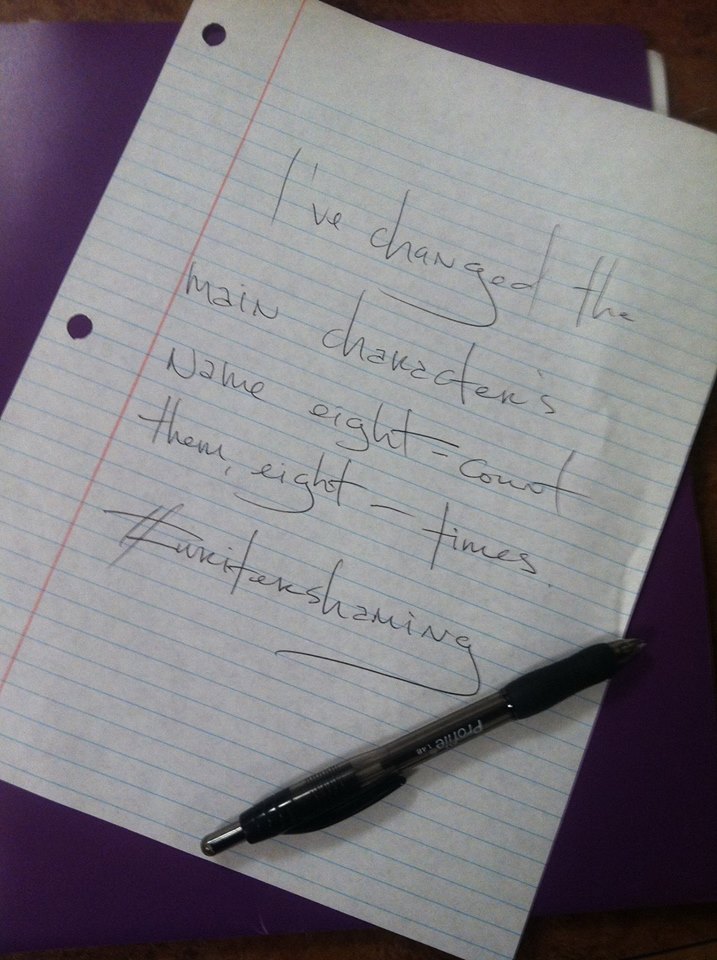 I've changed the
main character's
Name eight-count
them, eight-times.
#writershaming
Profile 1.4B